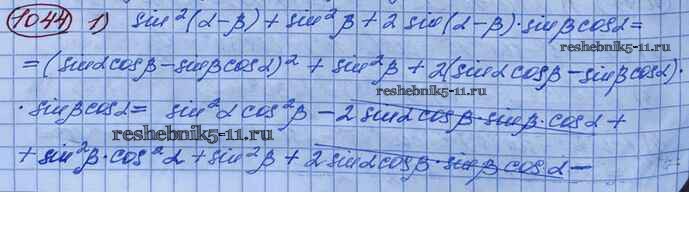 1044 1) sin²(α-β) + sin²β + 2 sin(α-β)·sinβcosα =
reshebnik5-11.ru
= (sinαcosβ - sinβcosα)² + sin²β + 2(sinαcosβ - sinβcosα)·
· sinβcosα = sin²αcos²β - 2sinαcosβ·sinβ·cosα +
reshebnik5-11.ru
+ sin²β·cos²α + sin²β + 2sinαcosβ·sinβcosα -